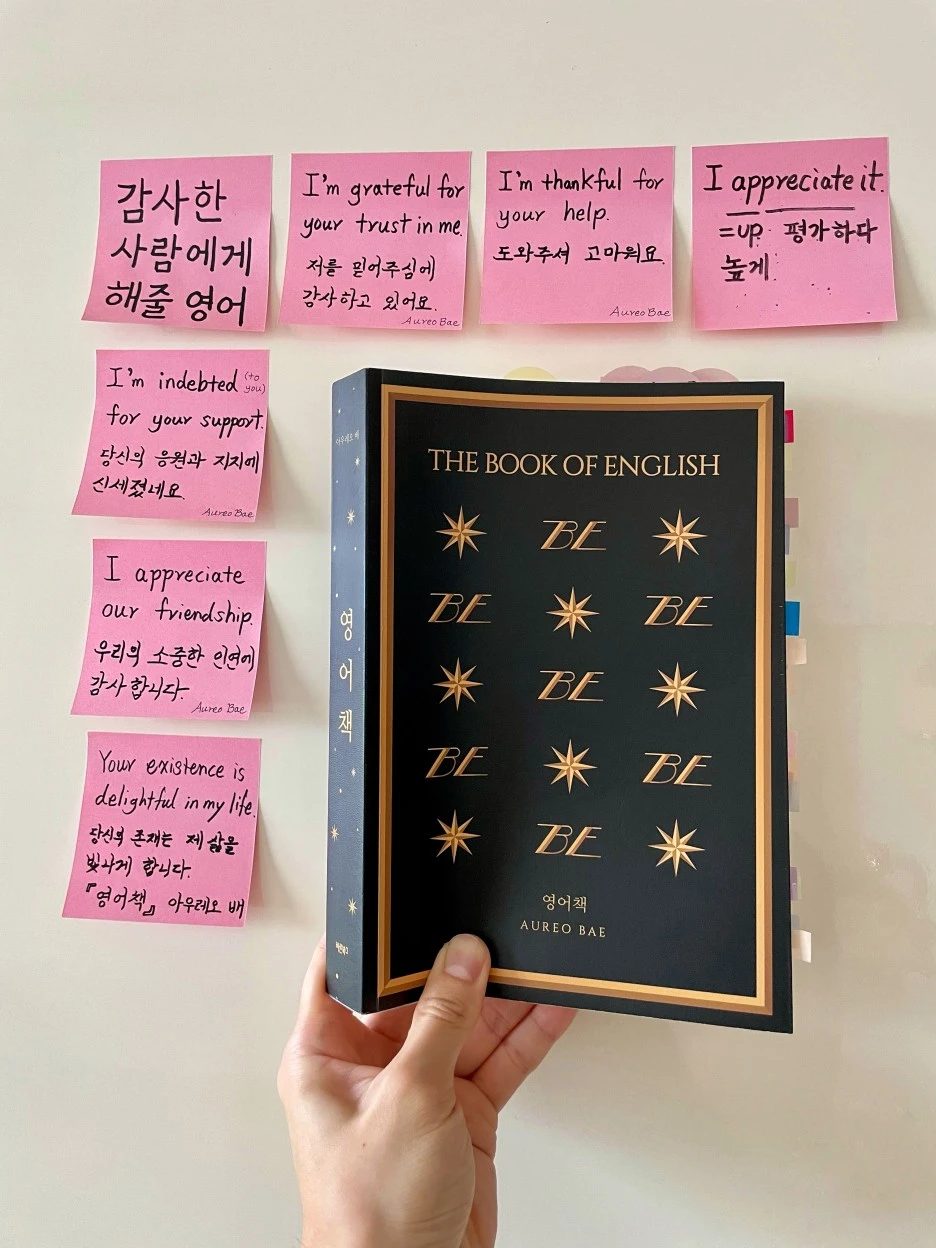 감사한
사람에게
해줄 영어
I'm grateful for
your trust in me.
저를 믿어주심에
감사하고 있어요.
Aureo Bae
I'm thankful for
your help.
도와주셔 고마워요.
Aureo Bae
I appreciate it.
=up. 평가하다
높게
I'm indebted (to
you)
for your support.
당신의 응원과 지지에
신세졌네요.
Aureo Bae
I appreciate
our friendship.
우리의 소중한 인연에
감사합니다.
Aureo Bae
Your existence is
delightful in my life.
당신의 존재는 제 삶을
빛나게 합니다.
『영어책』 아우레오 배
아우레오 배
영어책
THE BOOK OF ENGLISH
BE
BE BE
BE
BE BE
BE
영어책
AUREO BAE